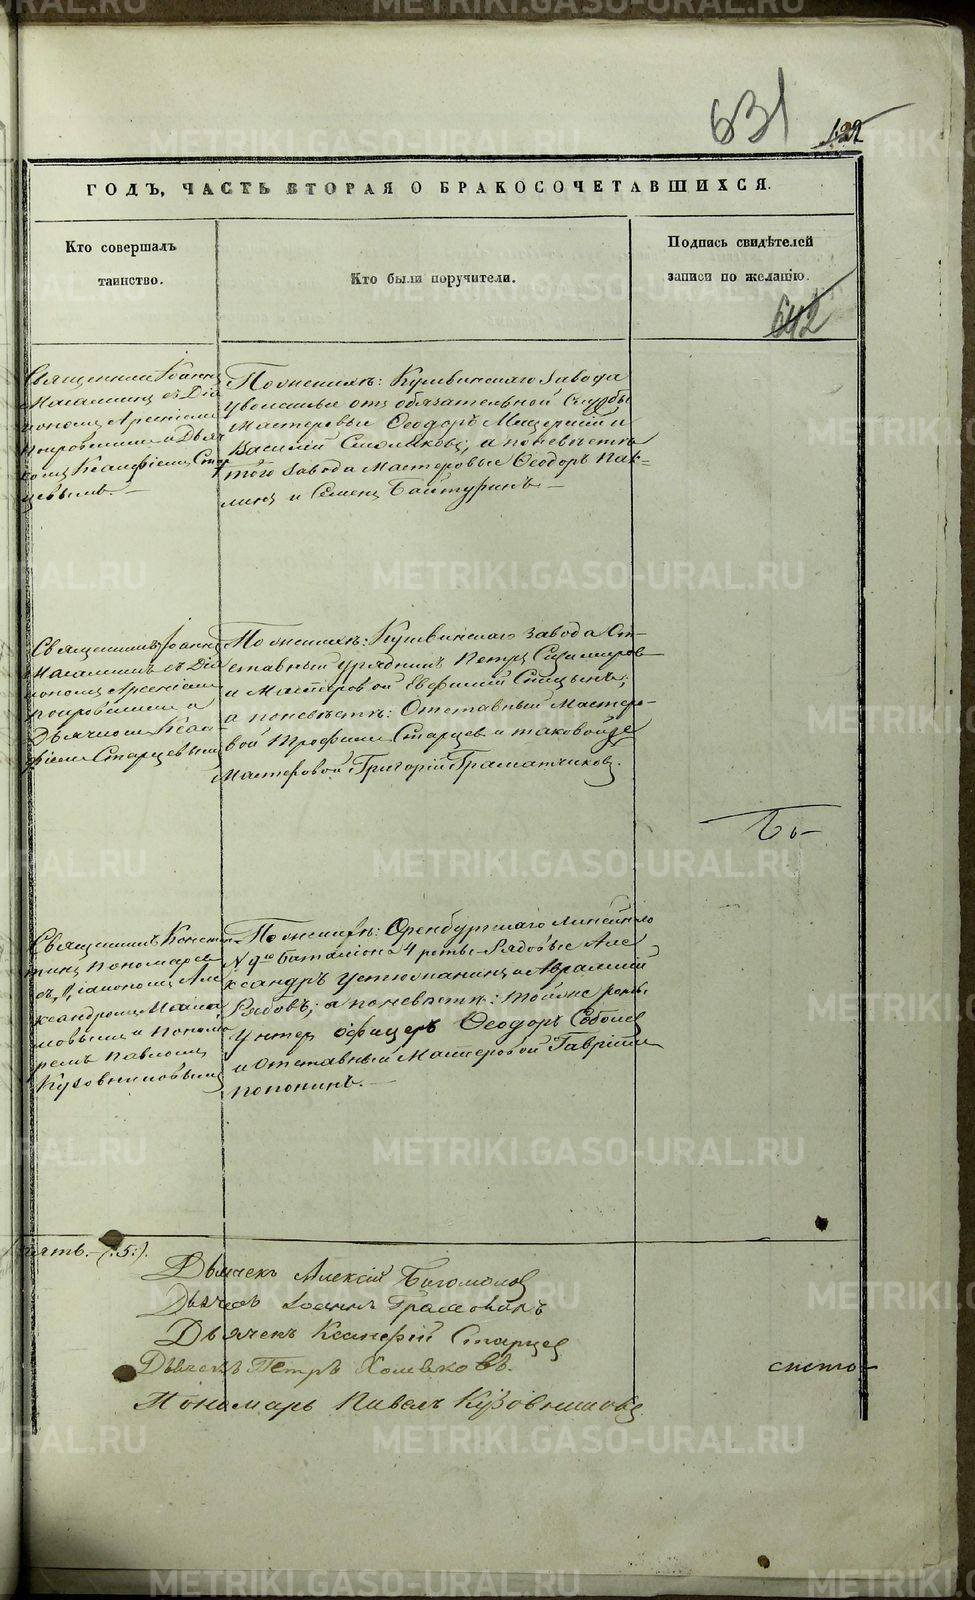 631
ГОДЪ, ЧАСТЬ ВТОРАЯ О БРАКОСОЧЕТАВШИХСЯ.
Кто совершалъ
таинство.
Кто были поручители.
Подпись свидѣтелей
записи по желанію.
642
Священникъ Іоаннъ
съ Діа
кономъ Арсеніемъ
Покровскимъ и Дьяч
комъ Ксанфіемъ Стар
цевымъ.—
По женихѣ: Кушвинскаго завода
уволенные отъ обязательной службы
Мастеровые Ѳеодоръ Мещерскій и
Василій Смоляковъ; а по невѣстѣ
того завода Мастеровые Ѳеодоръ
и Семенъ Байтуринъ.—
Священникъ Іоаннъ
съ Діа
кономъ Арсеніемъ
Покровскимъ и
Дьячкомъ Ксан
фіемъ Старцевымъ
По женихѣ: Кушвинскаго завода От-
ставный урядникъ Петръ
и Мастеровой Евфимій Спицынъ;
а по невѣстѣ: Отставный Мастеро-
вой Трофимъ Старцев и таковой же
Мастеровой Григорій Граматчиковъ.
Священникъ Констан
тинъ Пономарев
съ Діакономъ Але
ксандромъ
и Понома
ремъ Павломъ
Кузовниковымъ
По женихѣ: Оренбургскаго Линейнаго
N 9го баталіона 4 роты Рядовые Але
ксандръ Устюжанинъ и Авраамій
Рябовъ; а по невѣстѣ: той же роты
Унтер офицеръ Ѳеодоръ Соболев
и Отставный Мастеровой Гавріилъ
Попонинъ.—
пять.—(:5:).
Дьячекъ Алексій Богомолов
Дьячекъ Іоаннъ
Дьячекъ Ксанфій Старцев
Дьячекъ Петръ Хомяковъ.
Пономарь Павелъ Кузовниковъ
METRIKI.GASO-URAL.RU